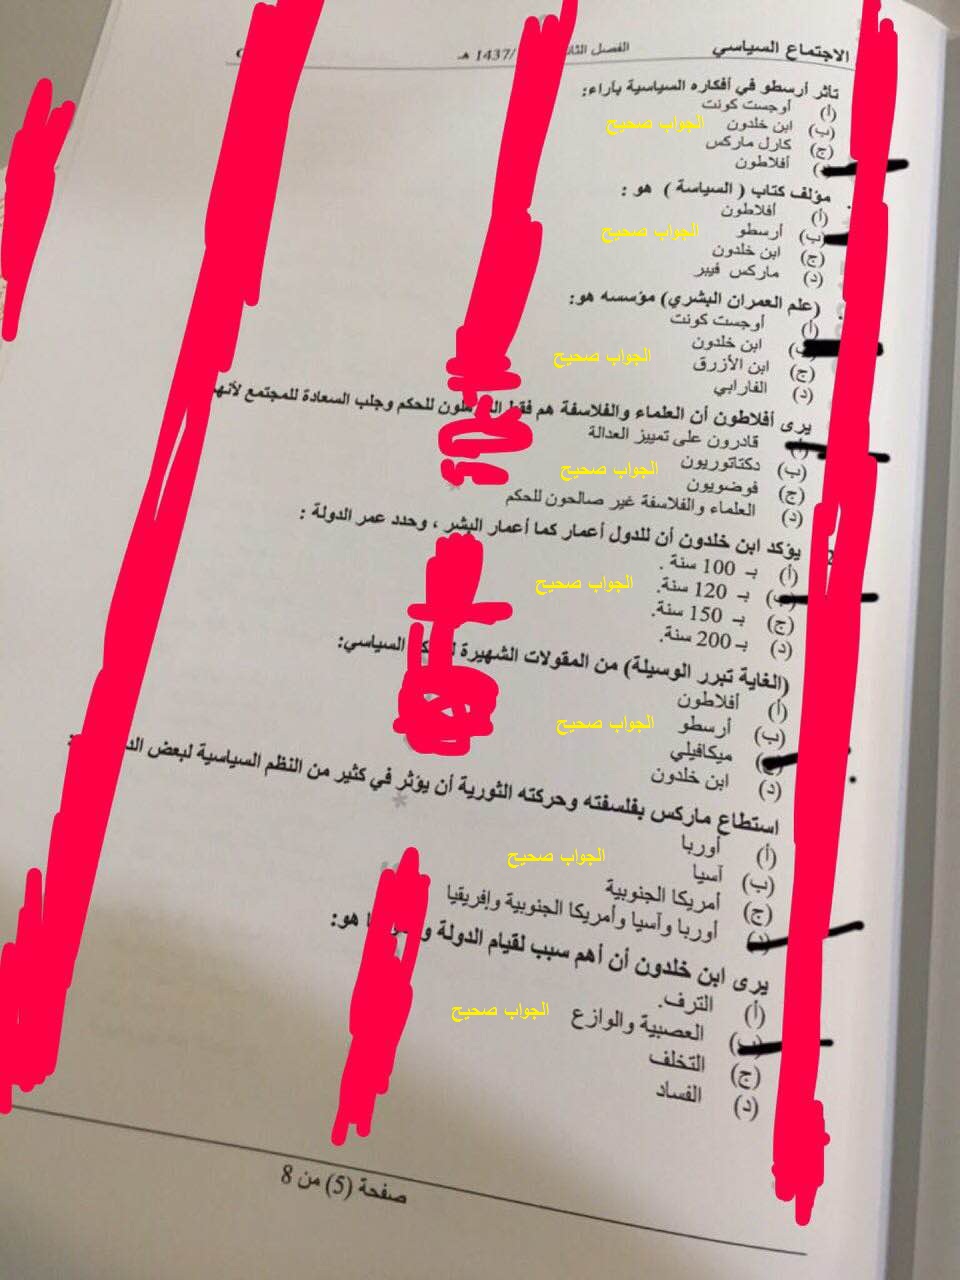 الاجتماع السياسي
الفصل 1437/ هـ
تأثر أرسطو في أفكاره السياسية بآراء:
(أ) أوجست كونت
(ب) ابن خلدون
الجواب صحيح
(ج) كارل ماركس
أفلاطون
مؤلف كتاب ( السياسة ) هو :
(أ) أفلاطون
(ب) أرسطو
الجواب صحيح
(ج) ابن خلدون
(د) ماركس فيبر
(علم العمران البشري) مؤسسه هو:
(أ) أوجست كونت
ابن خلدون
الجواب صحيح
(ج) ابن الأزرق
(د) الفارابي
يرى أفلاطون أن العلماء والفلاسفة هم فقط للحكم وجلب السعادة للمجتمع لأنهم
قادرون على تمييز العدالة
(ب) دكتاتوريون
الجواب صحيح
(ج) فوضويون
(د) العلماء والفلاسفة غير صالحون للحكم
يؤكد ابن خلدون أن للدول أعمار كما أعمار البشر ، وحدد عمر الدولة :
(أ) بـ 100 سنة .
(ب) بـ 120 سنة.
الجواب صحيح
(ج) بـ 150 سنة.
(د) بـ 200 سنة.
(الغاية تبرر الوسيلة) من المقولات الشهيرة السياسي:
(أ) أفلاطون
(ب) أرسطو
الجواب صحيح
(ج) ميكافيلي
(د) ابن خلدون
استطاع ماركس بفلسفته وحركته الثورية أن يؤثر في كثير من النظم السياسية لبعض
(أ) أوربا
الجواب صحيح
(ب) آسيا
(ج) أمريكا الجنوبية
(د) أوربا وآسيا وأمريكا الجنوبية وإفريقيا
يرى ابن خلدون أن أهم سبب لقيام الدولة هو:
(أ) الترف.
(ب) العصبية والوازع
الجواب صحيح
(ج) التخلف
(د) الفساد
صفحة (5) من 8